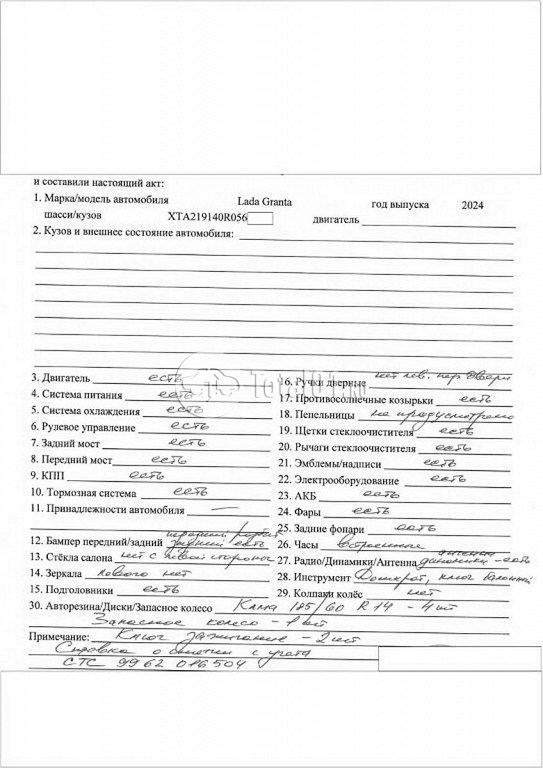 и составили настоящий акт:
1. Марка/модель автомобиля Lada Granta год выпуска 2024
шасси/кузов XTA219140R056 двигатель
2. Кузов и внешнее состояние автомобиля:
Total01.ru
3. Двигатель есть
16. Ручки дверные нет лев. пер двери
4. Система питания есть
17. Противосолнечные козырьки есть
5. Система охлаждения есть
18. Пепельницы не предусмотрено
6. Рулевое управление есть
19. Щетки стеклоочистителя есть
7. Задний мост есть
20. Рычаги стеклоочистителя есть
8. Передний мост есть
21. Эмблемы/надписи есть
9. КПП есть
22. Электрооборудование есть
10. Тормозная система есть
23. АКБ есть
11. Принадлежности автомобиля —
24. Фары есть
25. Задние фонари есть
12. Бампер передний/задний передний разбит задний есть
26. Часы встроенные
13. Стёкла салона нет с левой стороны
27. Радио/Динамики/Антенна антенна динамики - есть
14. Зеркала левого нет
28. Инструмент Домкрат, ключ балонный
15. Подголовники есть
29. Колпаки колёс нет
30. Авторезина/Диски/Запасное колесо Кама 185/60 R 14 - 4 шт
Запасное колесо - 1 шт
Примечание: Ключ зажигания - 2 шт
Справка о снятии с учета
СТС 9962 016504